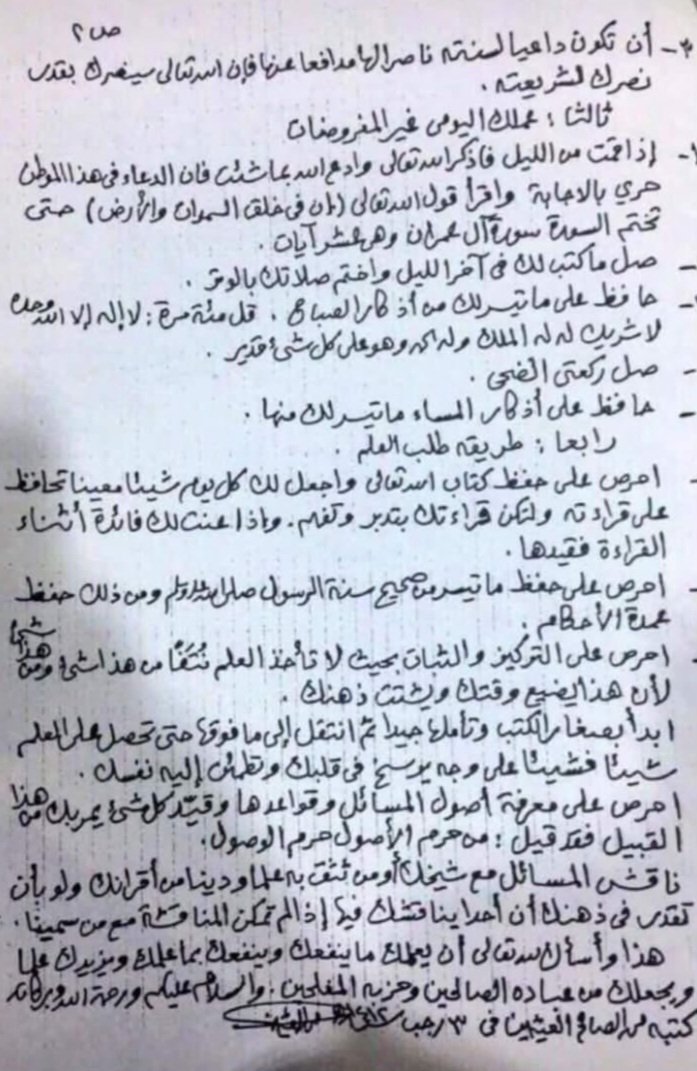 ص ٢
٣- أن تكون داعيا لسنته ناصرا لها مدافعا عنها فإن الله تعالى سينصرك بقدر
نصرك لشريعته .
ثالثا : عملك اليومي غير المفروضات
١- إذا قمت من الليل فاذكر الله تعالى وادع الله بما شئت فان الدعاء في هذا الموطن
حري بالاجابة واقرأ قول الله تعالى (إن في خلق السموات والأرض) حتى
تختم السورة سورة آل عمران وهي عشر آيات .
- صل ما كتب لك في آخر الليل واختم صلاتك بالوتر .
- حافظ على ما تيسر لك من أذكار الصباح . قل مئة مرة : لا إله إلا الله وحده
لا شريك له له الملك وله الحمد وهو على كل شيء قدير .
- صل ركعتي الضحى .
- حافظ على أذكار المساء ما تيسر لك منها .
رابعا : طريقة طلب العلم .
- احرص على حفظ كتاب الله تعالى واجعل لك كل يوم شيئا معينا تحافظ
على قراءته ولتكن قراءتك بتدبر وتفهم . وإذا عنت لك فائدة أثناء
القراءة فقيدها .
- احرص على حفظ ما تيسر من صحيح سنة الرسول صلى الله عليه وسلم ومن ذلك حفظ
عمدة الأحكام .
- احرص على التركيز والثبات بحيث لا تأخذ العلم نُتَفًا من هذا شيئا ومن هذا شيئا
لأن هذا يضيع وقتك ويشتت ذهنك .
ابدأ بصغار الكتب وتأملها جيدا ثم انتقل إلى ما فوقها حتى تحصل على العلم
شيئا فشيئا على وجه يرسخ في قلبك وتطمئن إليه نفسك .
احرص على معرفة أصول المسائل وقواعدها وقيّد كل شيء يمر بك من هذا
القبيل فقد قيل : من حرم الأصول حرم الوصول .
ناقش المسائل مع شيخك أو من تثق به علما ودينا من أقرانك ولو بأن
تقدر في ذهنك أن أحدا يناقشك فيها إذا لم تمكن المناقشة مع من سمينا .
هذا وأسأل الله تعالى أن يعلمك ما ينفعك وينفعك بما علمك ويزيدك علما
ويجعلك من عباده الصالحين وحزبه المفلحين . والسلام عليكم ورحمة الله وبركاته
كتبه محمد الصالح العثيمين في ٣ رجب